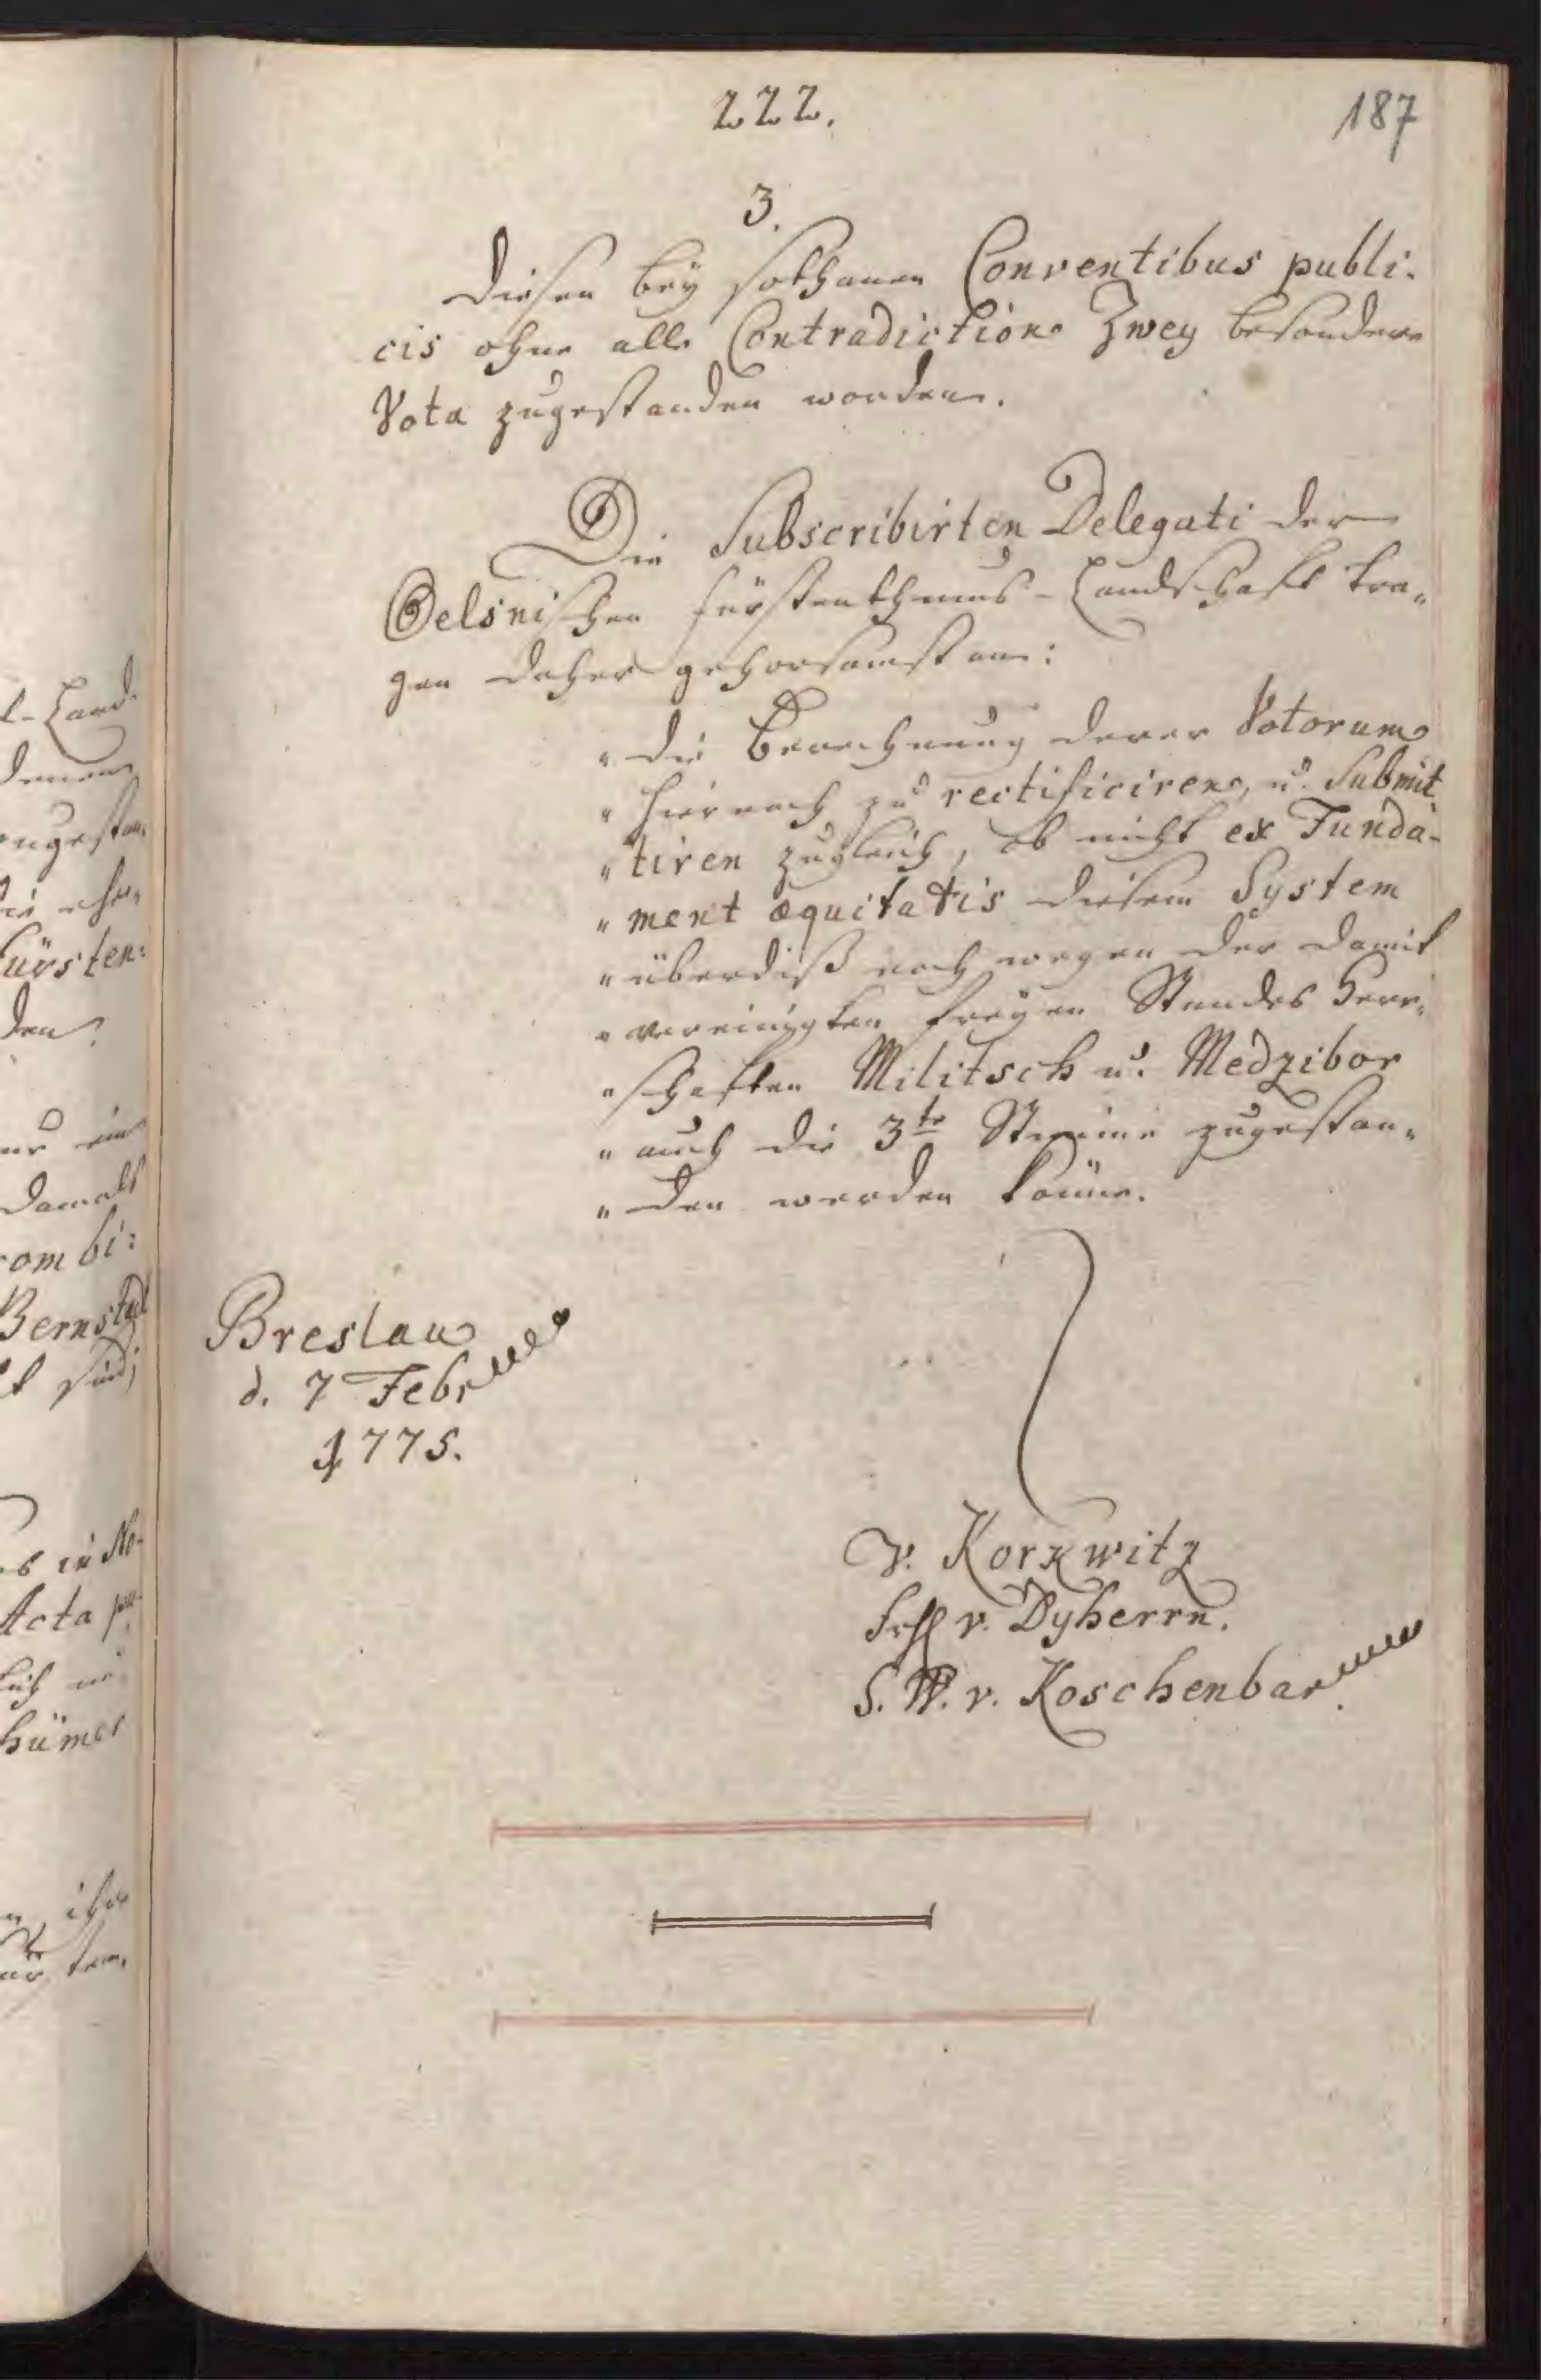 222.
187
3.
diesen bey sothanen Conventibus publi-
cis ohne alle Contradiction Zwey besondere
Vota zugestanden worden.
Die Subscribirten Delegati der
Oelsnischen Fürstenthums-Landschafft tra-
gen daher gehorsamst an:
" die Berechnung derer Votorum
" hiernach zu rectificiren, u. Submit
" tiren zugleich, ob nicht ex Funda-
" ment æquitatis diesem System
" überdiß noch wegen der damit
" vereinigten freyen Standes Herr-
" schaften Militsch u. Medzibor
" auch die 3te Stimme zugestan-
" den werden könne.
Breslau
d. 7 Febr
1775.
v. Korkwitz
v. Dyherrn.
S. W. v. Koschenbar
l-Land-
denen
zugestan-
ürsten-
den
damals
combi-
Bernstadt
t sind;
in No-
Acta pu-
lich
hümer
ihre